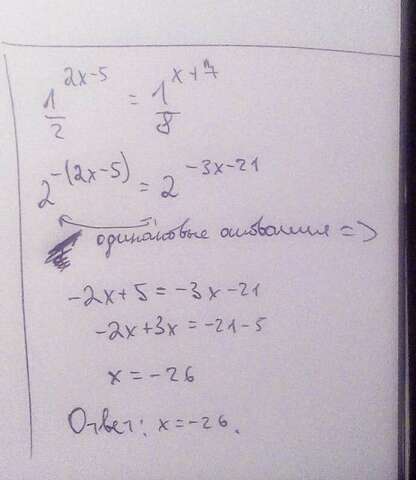 1/2^(2x-5) = 1/8^(x+7)
2^(-(2x-5)) = 2^(-3x-21)
одинаковые основания =>
-2x+5 = -3x-21
-2x+3x = -21-5
x = -26
Ответ: x=-26.